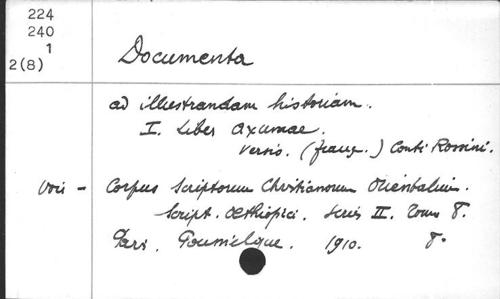 224
240
1
2(8)
Documenta
ad illustrandam historiam.
I. Liber Axumae.
Versio. (franç.) Conti Rossini.
Voir - Corpus Scriptorum Christianorum Orientalium.
Script. Æthiopici. Series II. Tom 8.
Pari. Poussielgue. 1910. 8.